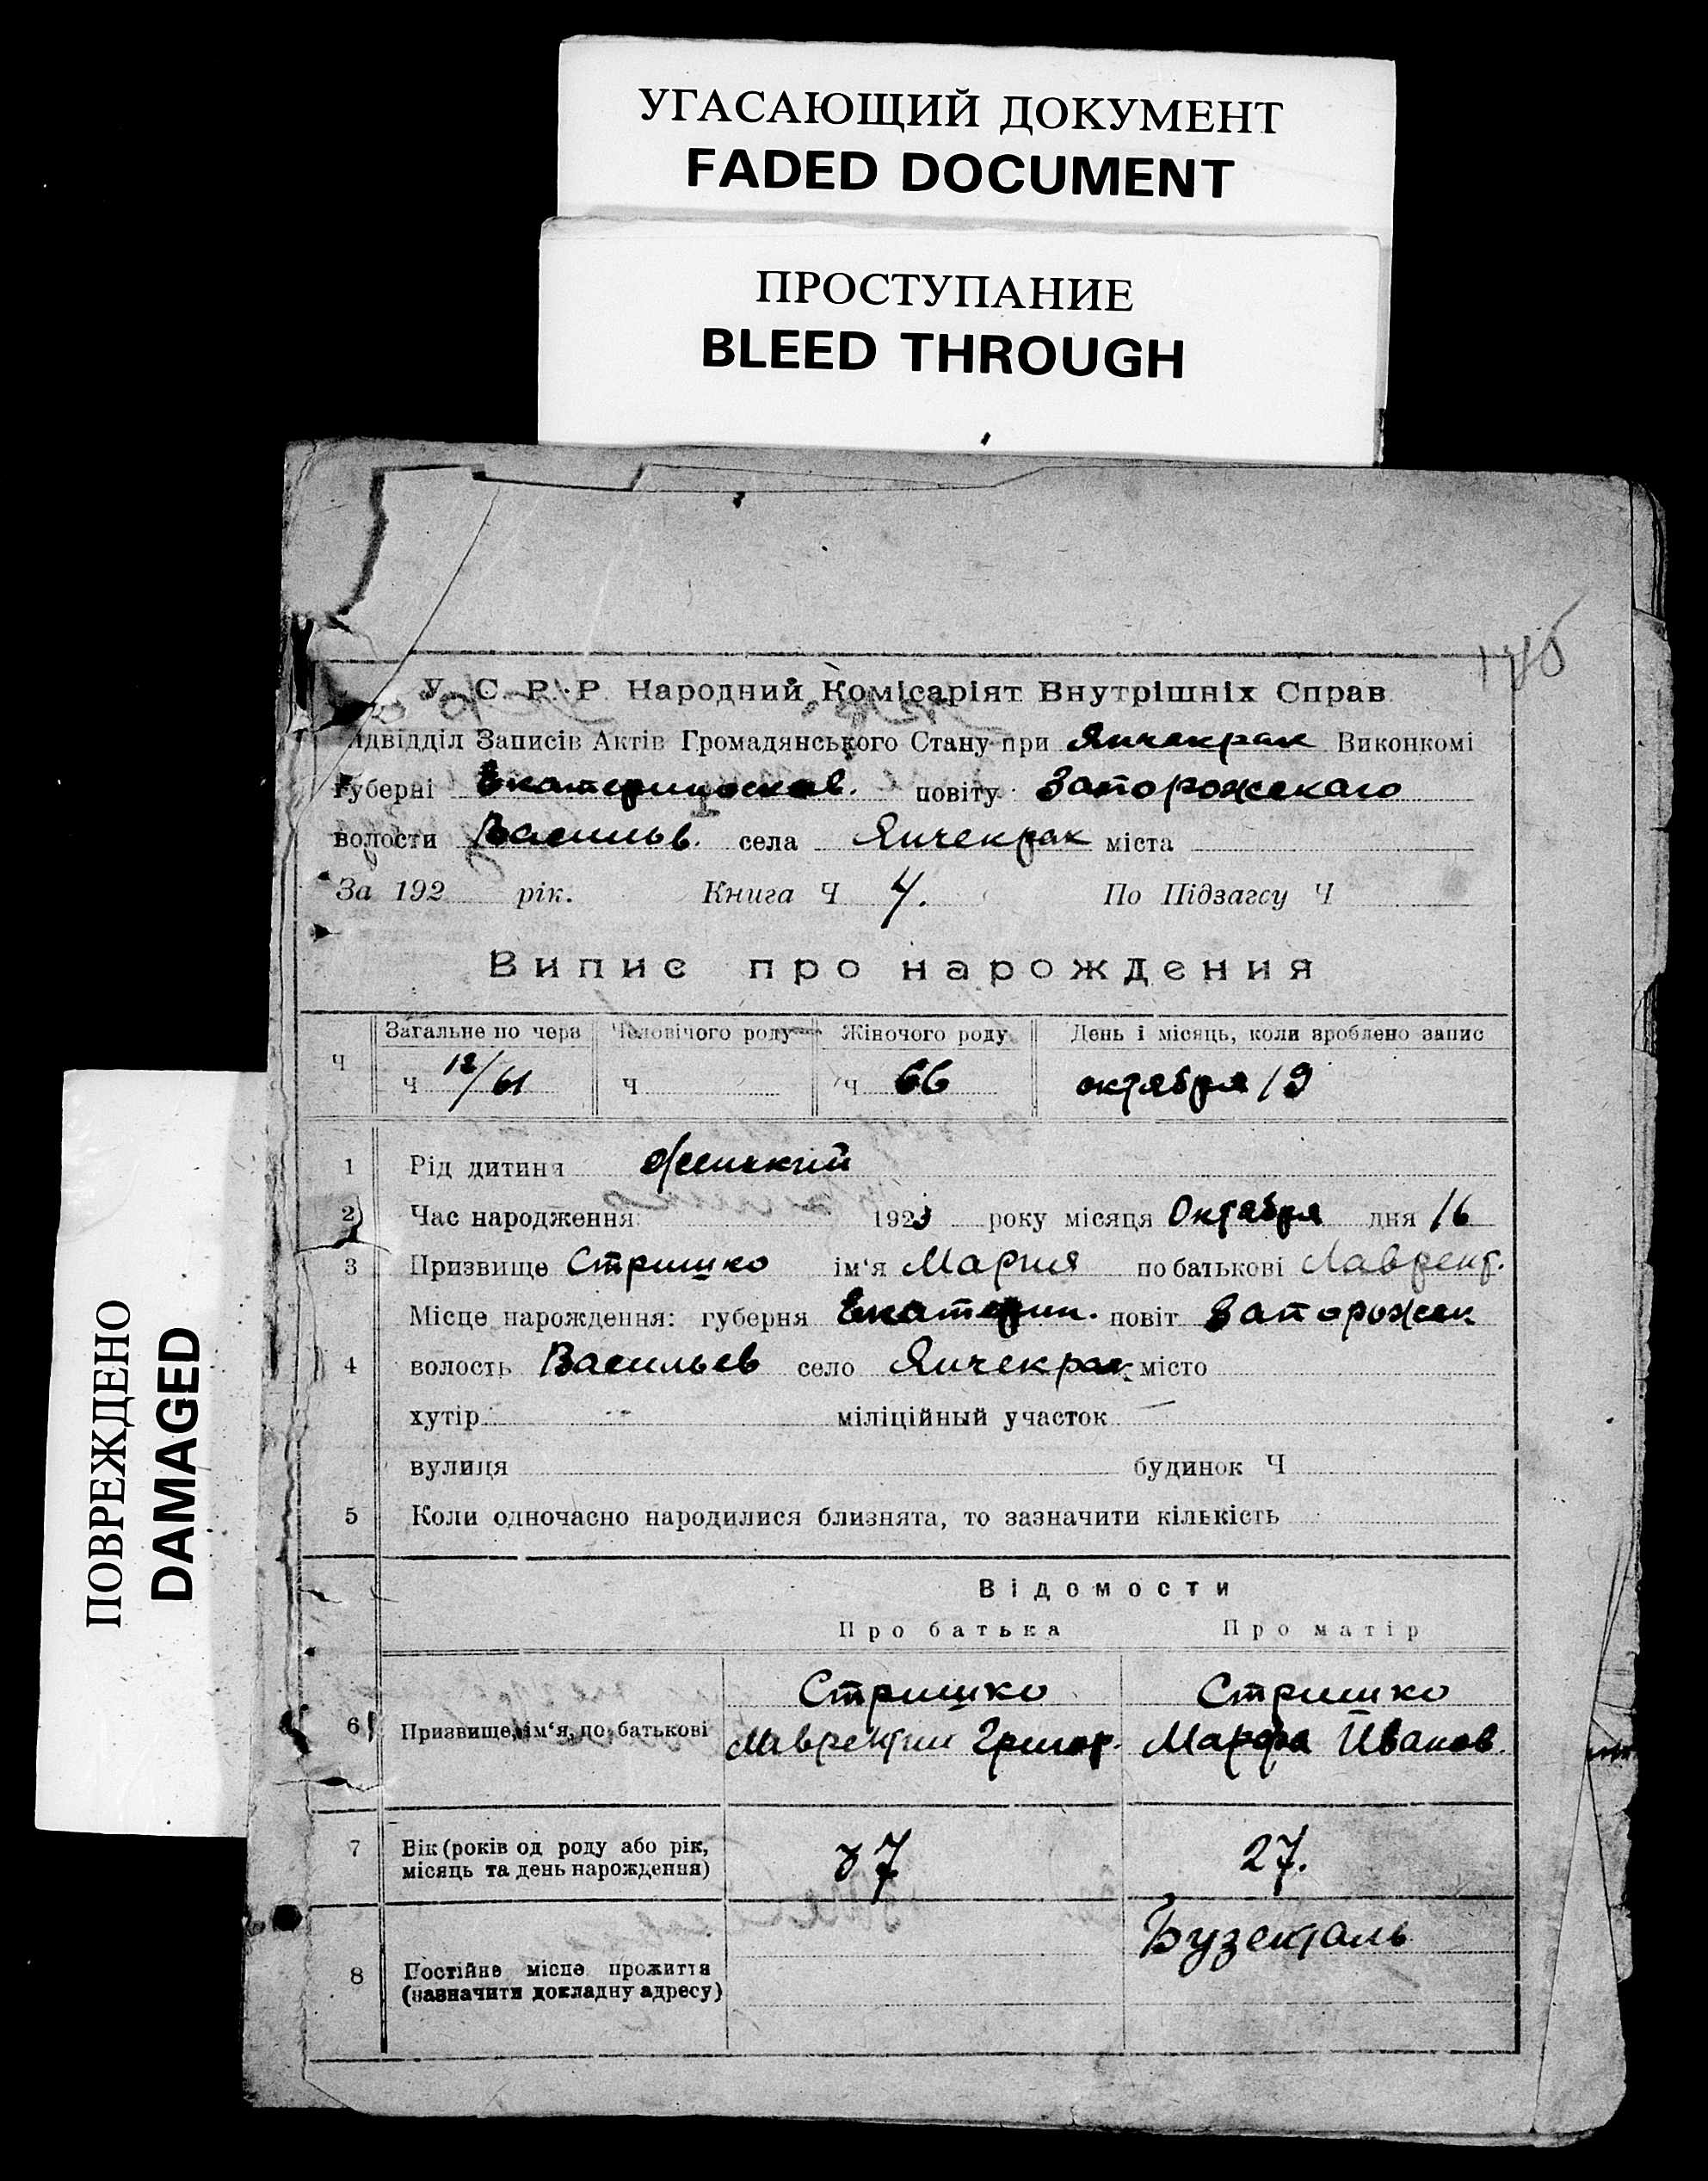 УГАСАЮЩИЙ ДОКУМЕНТ
FADED DOCUMENT
ПРОСТУПАНИЕ
BLEED THROUGH
ПОВРЕЖДЕНО
DAMAGED
У. С. Р. Р. Народний Комісаріят Внутрішніх Справ
ідвідділ Записів Актів Громадянського Стану при Янчекрак Виконкомі
Губерні Екатеринослав. повіту Запорожскаго
волости Васильев. села Янчекрак міста
За 192 рік. Книга Ч 4. По Підзагсу Ч
Випис про нарождения
Ч Загальне по черв Чоловічого роду Жіночого роду День і місяць, коли зроблено запис
Ч 12/61 Ч Ч 66 октября 19
1 Рід дитини Женский
2 Час народження 1923 року місяця Октября дня 16
3 Призвище Стришко ім‘я Мария по батькові Лаврент.
Місце нарождення: губерня Екатерин. повіт Запорожск
4 волость Васильев село Янчекрак місто
хутір міліційный участок
вулиця будинок Ч
5 Коли одночасно народилися близнята, то зазначити кількість
Відомости
Про батька Про матір
Стришко Стришко
6 Призвище, ім‘я, по батькові Лаврентии Григор. Марфа Иванов.
7 Вік (років од роду або рік, місяць та день нарождення) 37 27.
Бузенталь
8 Постійне місце прожиття
(назначити докладну адресу)